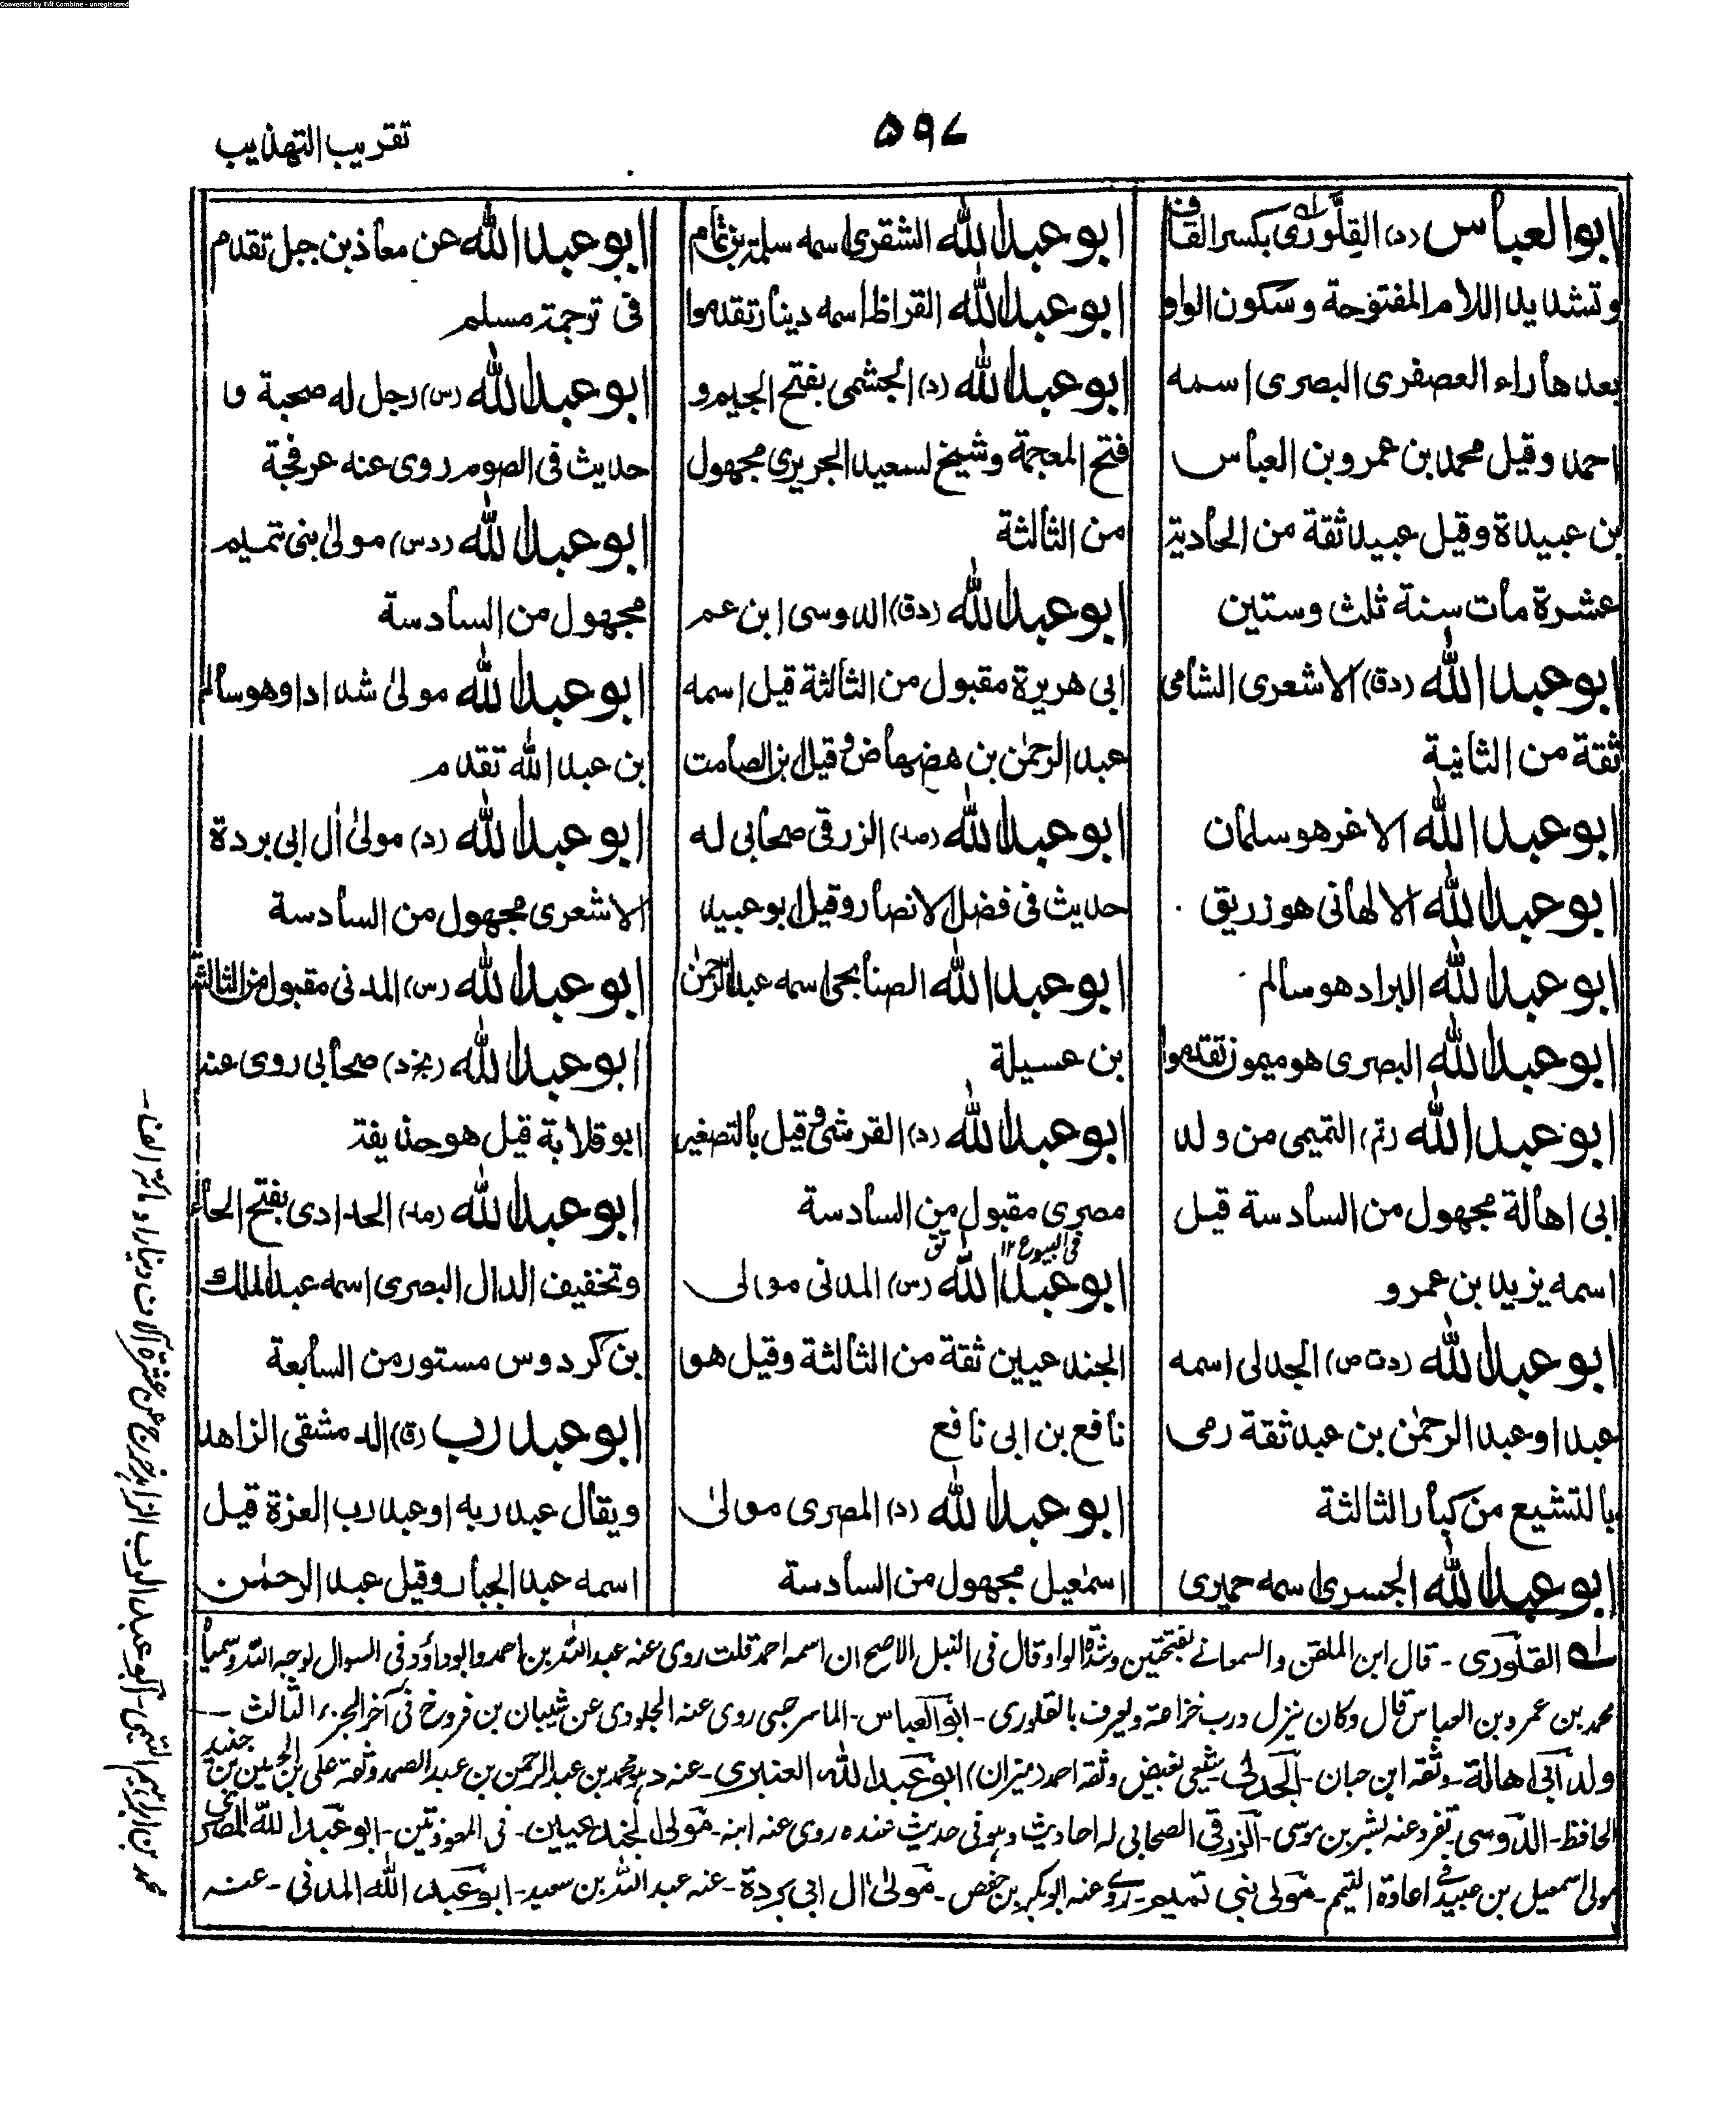 Converted by Tiff Combine - unregistered
۵۹۷
تقريب التهذيب
ابو العباس (د) القِلَّوْرى بكسر القاف
وتشديد اللام المفتوحة وسكون الواو
بعدها راء العصفرى البصرى اسمه
احمد وقيل محمد بن عمرو بن العباس
بن عبيدة وقيل عبيد ثقة من الحادية
عشرة مات سنة ثلث وستين
ابو عبد الله (دق) الاشعرى الشامى
ثقة من الثانية
ابو عبد الله الاغر هو سلمان
ابو عبد الله الالهانى هو زريق
ابو عبد الله البراد هو سالم
ابو عبد الله البصرى هو ميمون تقدموا
ابو عبد الله (تم) التميمى من ولد
ابى اهالة مجهول من السادسة قيل
اسمه يزيد بن عمرو
ابو عبد الله (دت ص) الجدلى اسمه
عبد او عبد الرحمٰن بن عبد ثقة رمى
بالتشيع من كبار الثالثة
ابو عبد الله الجسرى اسمه حميرى
ابو عبد الله الشقرى اسمه سلمة بن تمام
ابو عبد الله القراظ اسمه دينار تقدموا
ابو عبد الله (د) الجشمى بفتح الجيم و
فتح المعجمة وشيخ لسعيد الجريرى مجهول
من الثالثة
ابو عبد الله (دق) الدوسى ابن عم
ابى هريرة مقبول من الثالثة قيل اسمه
عبد الرحمٰن بن هضهاض وقيل بن الصامت
ابو عبد الله (مد) الزرقى صحابى له
حديث فى فضل الانصار وقيل ابو عبيد
ابو عبد الله الصنابحى اسمه عبد الرحمٰن
بن عسيلة
ابو عبد الله (د) القرشى وقيل بالتصغير
مصرى مقبول من السادسة
فى البيوع ١٢
ابو عبد الله (س) المدنى مولى
الجندعيين ثقة من الثالثة وقيل هو
نافع بن ابى نافع
ابو عبد الله (د) المصرى مولىٰ
اسمٰعيل مجهول من السادسة
ابو عبد الله عن معاذ بن جبل تقدم
فى ترجمة مسلم
ابو عبد الله (س) رجل له صحبة و
حديث فى الصوم روى عنه عرفجة
ابو عبد الله (دس) مولىٰ بنى تميم
مجهول من السادسة
ابو عبد الله مولىٰ شداد وهو سالم
بن عبد الله تقدم
ابو عبد الله (د) مولىٰ اٰل ابى بردة
الاشعرى مجهول من السادسة
ابو عبد الله (س) المدنى مقبول من الثالثة
ابو عبد الله (بخ د) صحابى روى عنه
ابو قلابة قيل هو حذيفة
ابو عبد الله (مد) الحدادى بفتح الحاء
وتخفيف الدال البصرى اسمه عبد الملك
بن كردوس مستور من السابعة
ابو عبد رب (ق) الدمشقى الزاهد
ويقال عبد ربه او عبد رب العزة قيل
اسمه عبد الجبار وقيل عبد الرحمٰن
القلورى - قال ابن الملقن والسمعانے بفتحتين وشدة الواو وقال فى النبل الاصح ان اسمه احمد قلت روى عنه عبد الله بن احمد وابو داؤد فى السوال لوجه الله وسمياه
محمد بن عمرو بن العباس قال وكان ينزل درب خزاعة ويعرف بالقلورى - ابو العباس - الماسرجسى روى عنه الجلودى عن شيبان بن فروخ فى آخر الجزء الثالث -
ولد ابى اهالة - وثقه ابن حبان - الجدلى - شيعى بغيض وثقه احمد (ميزان) ابو عبد الله العنبرى - عنه د هو محمد بن عبد الرحمٰن بن عبد الصمد وثقه على بن الحسين بن جنيد
الحافظ - الدوسى - تفرد عنه بشر بن موسى - الزرقى الصحابى له احاديث و هو فى حديث عنده روى عنه ابنه - مولى الجندعيين - فى المعوذتين - ابو عبد الله المصرى
مولى اسمعيل بن عبيد فى اعادة التيمم - مولى بنى تميم - روى عنه ابو بكر بن حفص - مولىٰ اٰل ابى بردة - عنه عبد الله بن سعيد - ابو عبد الله المدنى - عنه
محمد بن ابراهيم التيمى - ابو عبد الرب الزاهد خرج عن عشرة آلاف دينار او مائة الف -